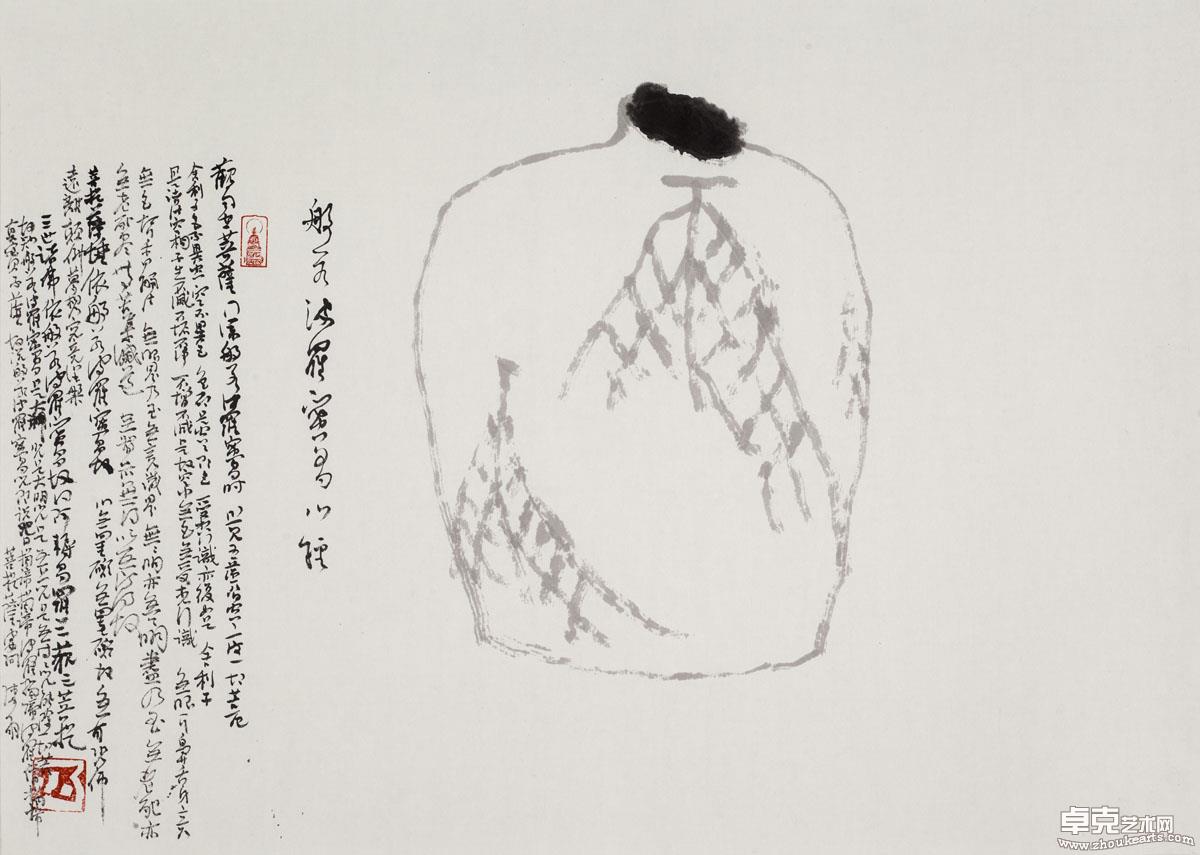 般若波羅蜜多心經
觀自在菩薩行深般若波羅蜜多時照見五蘊皆空度一切苦厄
舍利子色不異空空不異色色即是空空即是色受想行識亦復如是舍利子
是諸法空相不生不滅不垢不淨不增不減是故空中無色無受想行識無眼耳鼻舌身意
無色 無眼界乃至無意識界無無明亦無無明盡乃至無老死亦
無老死盡無苦集滅道無智亦無得以無所得故
菩提薩埵依般若波羅蜜多故心無罣礙無罣礙故無有恐怖
遠離顛倒夢想究竟涅槃
三世諸佛依般若波羅蜜多故得阿耨多羅三藐三菩提
故知般若波羅蜜多是大神咒是大明咒是無上咒是無等等咒能除一切苦
真實不虛故說般若波羅蜜多咒即說咒曰揭諦揭諦波羅揭諦波羅僧揭諦
菩提薩婆訶
卓克艺术网
www.zhoukearts.com